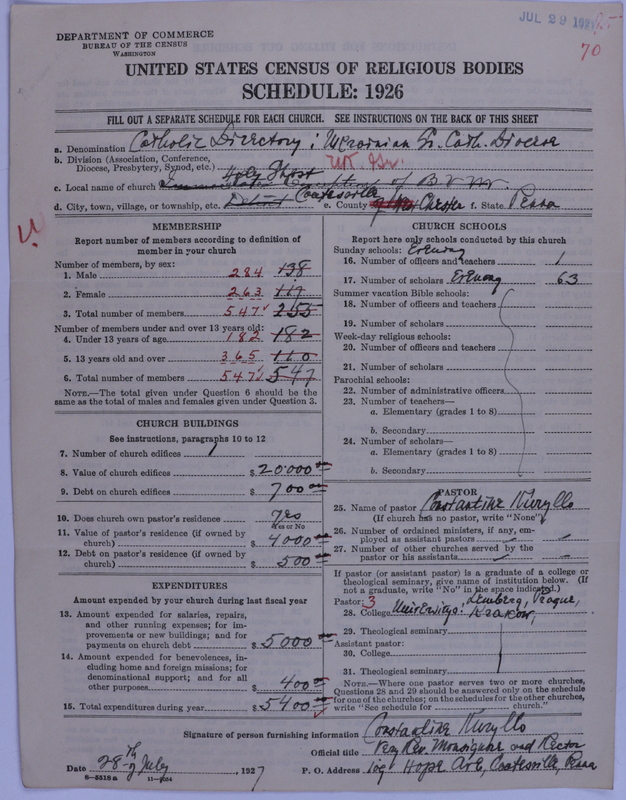 JUL 29 1927
70
DEPARTMENT OF COMMERCE
BUREAU OF THE CENSUS
WASHINGTON
UNITED STATES CENSUS OF RELIGIOUS BODIES
SCHEDULE: 1926
FILL OUT A SEPARATE SCHEDULE FOR EACH CHURCH. SEE INSTRUCTIONS ON THE BACK OF THIS SHEET
a. Denomination Catholic Directory: Ukrainian Gr. Cath. Diocese
b. Division (Association, Conference, Diocese, Presbytery, Synod, etc.) Uk. Gr.
Holy Ghost
c. Local name of church Immaculate Conception of B V M.
d. City, town, village, or township, etc. Coatesville e. County Chester f. State Penna
MEMBERSHIP
Report number of members according to definition of member in your church
Number of members, by sex:
1. Male 284 138
2. Female 263 117
3. Total number of members 547 255
Number of members under and over 13 years old:
4. Under 13 years of age 182 182
5. 13 years old and over 365 110
6. Total number of members 547 547
NOTE.—The total given under Question 6 should be the same as the total of males and females given under Question 3.
CHURCH BUILDINGS
See instructions, paragraphs 10 to 12
7. Number of church edifices 1
8. Value of church edifices $ 20000
9. Debt on church edifices $ 700
10. Does church own pastor's residence Yes
Yes or No
11. Value of pastor's residence (if owned by church) $ 4000
12. Debt on pastor's residence (if owned by church) $ 500
EXPENDITURES
Amount expended by your church during last fiscal year
13. Amount expended for salaries, repairs, and other running expenses; for improvements or new buildings; and for payments on church debt $ 5000
14. Amount expended for benevolences, including home and foreign missions; for denominational support; and for all other purposes $ 400
15. Total expenditures during year $ 5400
CHURCH SCHOOLS
Report here only schools conducted by this church
Sunday schools:
16. Number of officers and teachers 1
17. Number of scholars 63
Summer vacation Bible schools:
18. Number of officers and teachers
19. Number of scholars
Week-day religious schools:
20. Number of officers and teachers
21. Number of scholars
Parochial schools:
22. Number of administrative officers
23. Number of teachers—
a. Elementary (grades 1 to 8)
b. Secondary
24. Number of scholars—
a. Elementary (grades 1 to 8)
b. Secondary
PASTOR
25. Name of pastor Constantine Kuryllo
(If church has no pastor, write "None")
26. Number of ordained ministers, if any, employed as assistant pastors
27. Number of other churches served by the pastor or his assistants
If pastor (or assistant pastor) is a graduate of a college or theological seminary, give name of institution below. (If not a graduate, write "No" in the space indicated.)
Pastor: 3 Lemberg, Prague,
28. College Universitys: Krakow,
29. Theological seminary
Assistant pastor:
30. College
31. Theological seminary
NOTE.—Where one pastor serves two or more churches, Questions 28 and 29 should be answered only on the schedule for one of the churches; on the schedules for the other churches, write "See schedule for ........ church."
Signature of person furnishing information Constantine Kuryllo
Official title Very Rev. Monsignor and Rector
Date 28th of July, 1927 P. O. Address 109 Hope Ave, Coatesville, Penna
6—5518a 11—9124